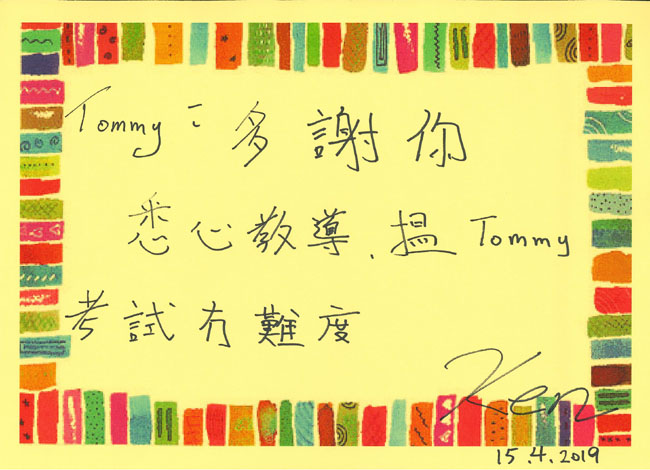 Tommy：多謝你
悉心教導，搵 Tommy
考試冇難度
Ken
15.4.2019